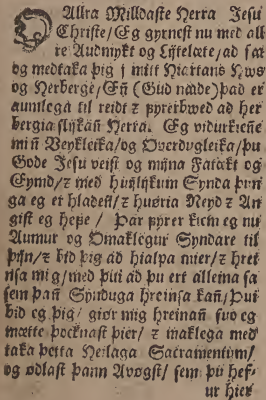 O Allra Milldaste Herra Jesu
Christe/ Eg gyrnest nu med all-
re Audmykt og Lijtelæte/ ad sæ
og medtaka þig j mitt Hiartans Hws
og Herberge/ Eñ (Gud næde) þad er
aumlega til reidt ꝛ fyrerbwed ad her
bergia slijkañ Herra. Eg vidurkieñe
miñ Veykleika/ og Overdugleika/ þu
Gode Jesu veist og mijna Fatækt og
Eymd/ ꝛ med huijlijkum Synda þun
ga eg er hladeñ/ ꝛ hueria Neyd ꝛ An
gist eg hefe/ Þar fyrer kiem eg nu
Aumur og Omaklegur Syndare til
þijn/ ꝛ bid þig ad hialpa mier/ ꝛ hrei
nsa mig/ med þui ad þu ert alleina sa
sem þañ Synduga hreinsa kañ/ Þui
bid eg þig/ giør mig hreinañ svo eg
mætte þocknast þier/ ꝛ maklega med
taka þetta Heilaga Sacramentum/
og odlast þann Avøgst/ sem þu hef-
ur hier